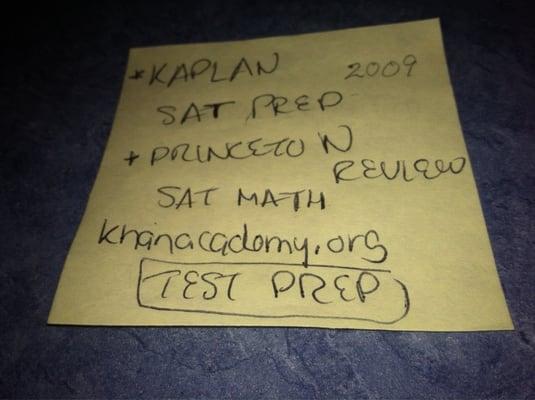 *KAPLAN 2009
SAT PREP
*PRINCETON
REVIEW
SAT MATH
khanacademy.org
TEST PREP